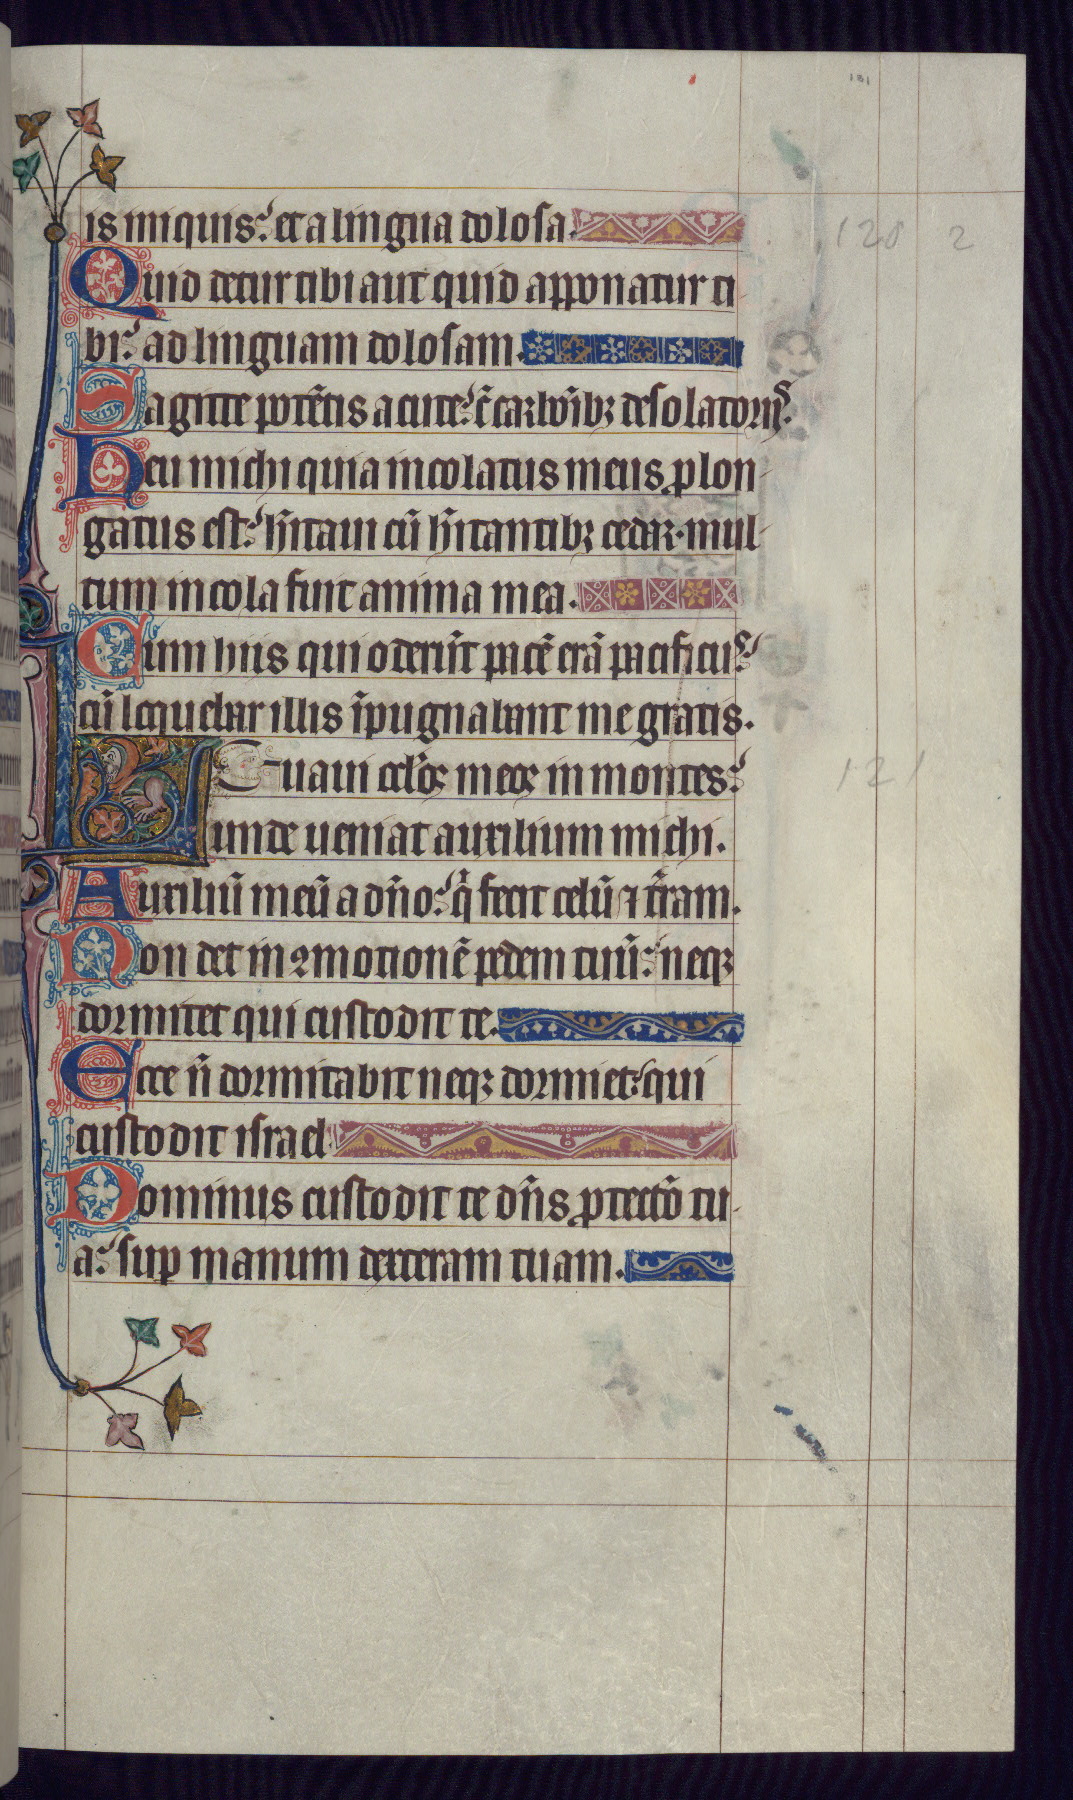 131
is iniquis: et a lingua dolosa.
120 2
Quid detur tibi aut quid apponatur ti
bi: ad linguam dolosam.
Sagitte potẽtis acute: c̃ carbõibꝫ desolatorijs.
Heu michi quia incolatus meus ꝓlon
gatus est: h̃itaui cũ h̃itantibꝫ cedar. mul
tum incola fuit anima mea.
Cum hiis qui oderũt pacẽ erã pacificus:
cũ loquebar illis ĩpugnabant me gratis.
Leuaui ocl̃os meos in montes:
121
unde ueniat auxilium michi.
Auxiliũ meũ a dño: q̃ fecit celũ ⁊ t̃ram.
Non det in ꝯmotionẽ pedem tuũ: neqꝫ
dormitet qui custodit te.
Ecce ñ dormitabit neqꝫ dormiet: qui
custodit israel
Dominus custodit te dñs ꝓtectõ tu
a: suꝑ manum dexteram tuam.